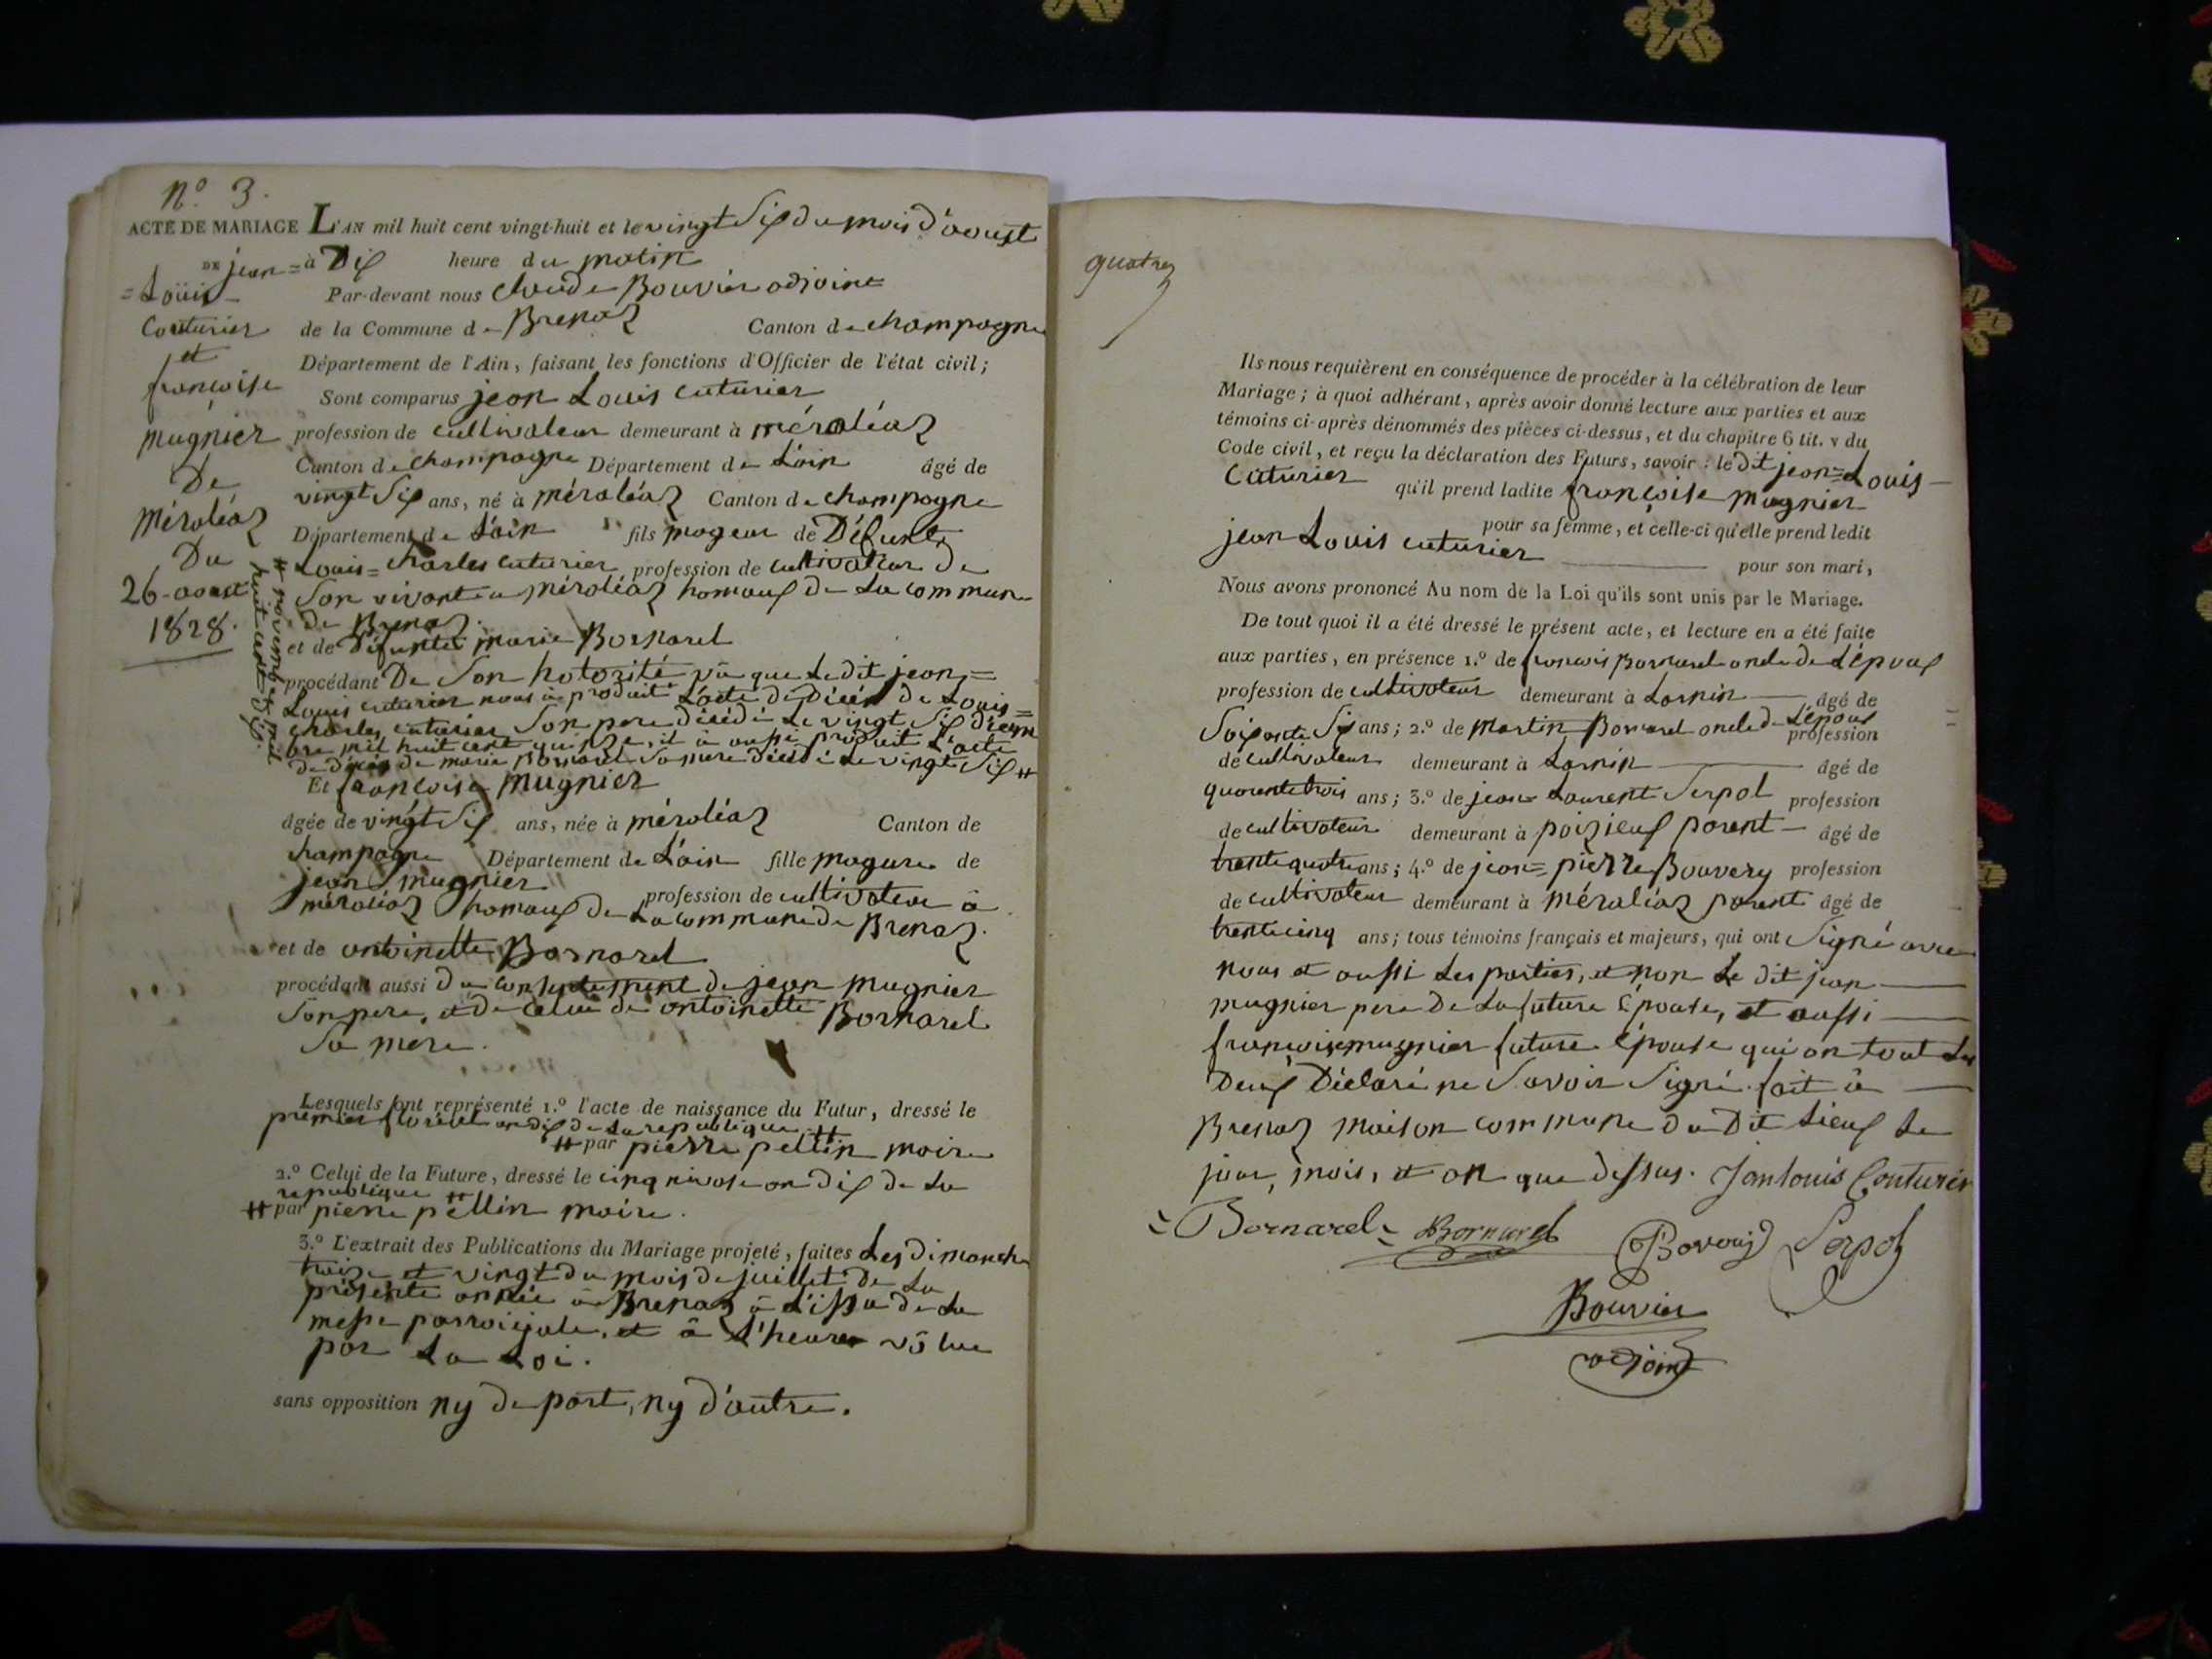 n.º 3.
ACTE DE MARIAGE
DE jean=
=Loüis-
Couturier
et
françoise
mugnier
De
Méraléaz
Du
26-aoust
1828.
L'AN mil huit cent vingt-huit et le vingt Six du mois d'aoust
à Dix heure du matin
Par-devant nous claude Bouvier adjoint
de la Commune de Brenaz Canton de champagne
Département de l'Ain, faisant les fonctions d'Officier de l'état civil;
Sont comparus jean Louis cuturier
profession de cultivateur demeurant à méraléaz
Canton de champagne Département de L'ain âgé de
vingt Six ans, né à méraléaz Canton de champagne
Département de L'ain fils mageur de Défunt
Louis=charles cuturier profession de cultivateur De
Son vivant a méraléaz hamaux de La commune
de Brenaz.
et de Défunte marie Bornarel
procédant De Son hotorité vû que Le dit jean=
Louis cuturier nous a produit L'acte de Décès de Louis=
charles cuturier Son pere décédé Le vingt Six décem
bre mil huit cent quinze, il à aussi produit L'acte
de décès de marie Bornarel Sa mere décédé Le vingt Six #
# novembre mil
huit cent dix.
Et françoise mugnier
âgée de vingt Six ans, née à méraléaz Canton de
champagne Département de L'ain fille mageure de
jean mugnier
profession de cultivateur à
méraléaz hamaux de La commune de Brenaz.
et de antoinette Bornarel
procédant aussi du consentement de jean mugnier
Son pere, et de celui de antoinette Bornarel
Sa mere.
Lesquels ont représenté 1.º l'acte de naissance du Futur, dressé le
premier floréal an dix de La republique #
# par pierre pellin maire
2.º Celui de la Future, dressé le cinq nivose an dix de La
republique #
# par pierre pellin maire.
3.º L'extrait des Publications du Mariage projeté, faites Les dimanche
treize et vingt du mois de juillet de La
présente année à Brenaz à L'issu de La
messe parroissiale, et à L'heure vôlue
par La Loi.
sans opposition ny de part, ny d'autre.
quatre
Ils nous requièrent en conséquence de procéder à la célébration de leur
Mariage; à quoi adhérant, après avoir donné lecture aux parties et aux
témoins ci-après dénommés des pièces ci-dessus, et du chapitre 6 tit. v du
Code civil, et reçu la déclaration des Futurs, savoir: le dit jean=Louis-
Cuturier qu'il prend ladite françoise mugnier
pour sa femme, et celle-ci qu'elle prend ledit
jean Louis cuturier pour son mari,
Nous avons prononcé Au nom de la Loi qu'ils sont unis par le Mariage.
De tout quoi il a été dressé le présent acte, et lecture en a été faite
aux parties, en présence 1.º de francois Bornarel oncle de L'époux
profession de cultivateur demeurant à Larnin âgé de
Soixante Six ans; 2.º de Martin Bornarel oncle de L'époux
profession
de cultivateur demeurant à Larnin âgé de
quarente trois ans; 3.º de jean Laurent Serpol profession
de cultivateur demeurant à poizieux parent âgé de
trente quatre ans; 4.º de jean=pierre Bouvery profession
de cultivateur demeurant à méraliaz parent âgé de
trente cinq ans; tous témoins français et majeurs, qui ont Signé avec
nous et aussi Les parties, et non Le dit jean
mugnier pere De La future Épouse, et aussi
francoise mugnier future Épouse qui on tout Les
Deux Déclaré ne Savoir Signé. fait à
Brenaz maison commune du Dit Lieux Le
jour, mois, et an que dessus. Janlouis Couturier
Bornarel Bornarel Bovery Serpol
Bouvier
adjoint